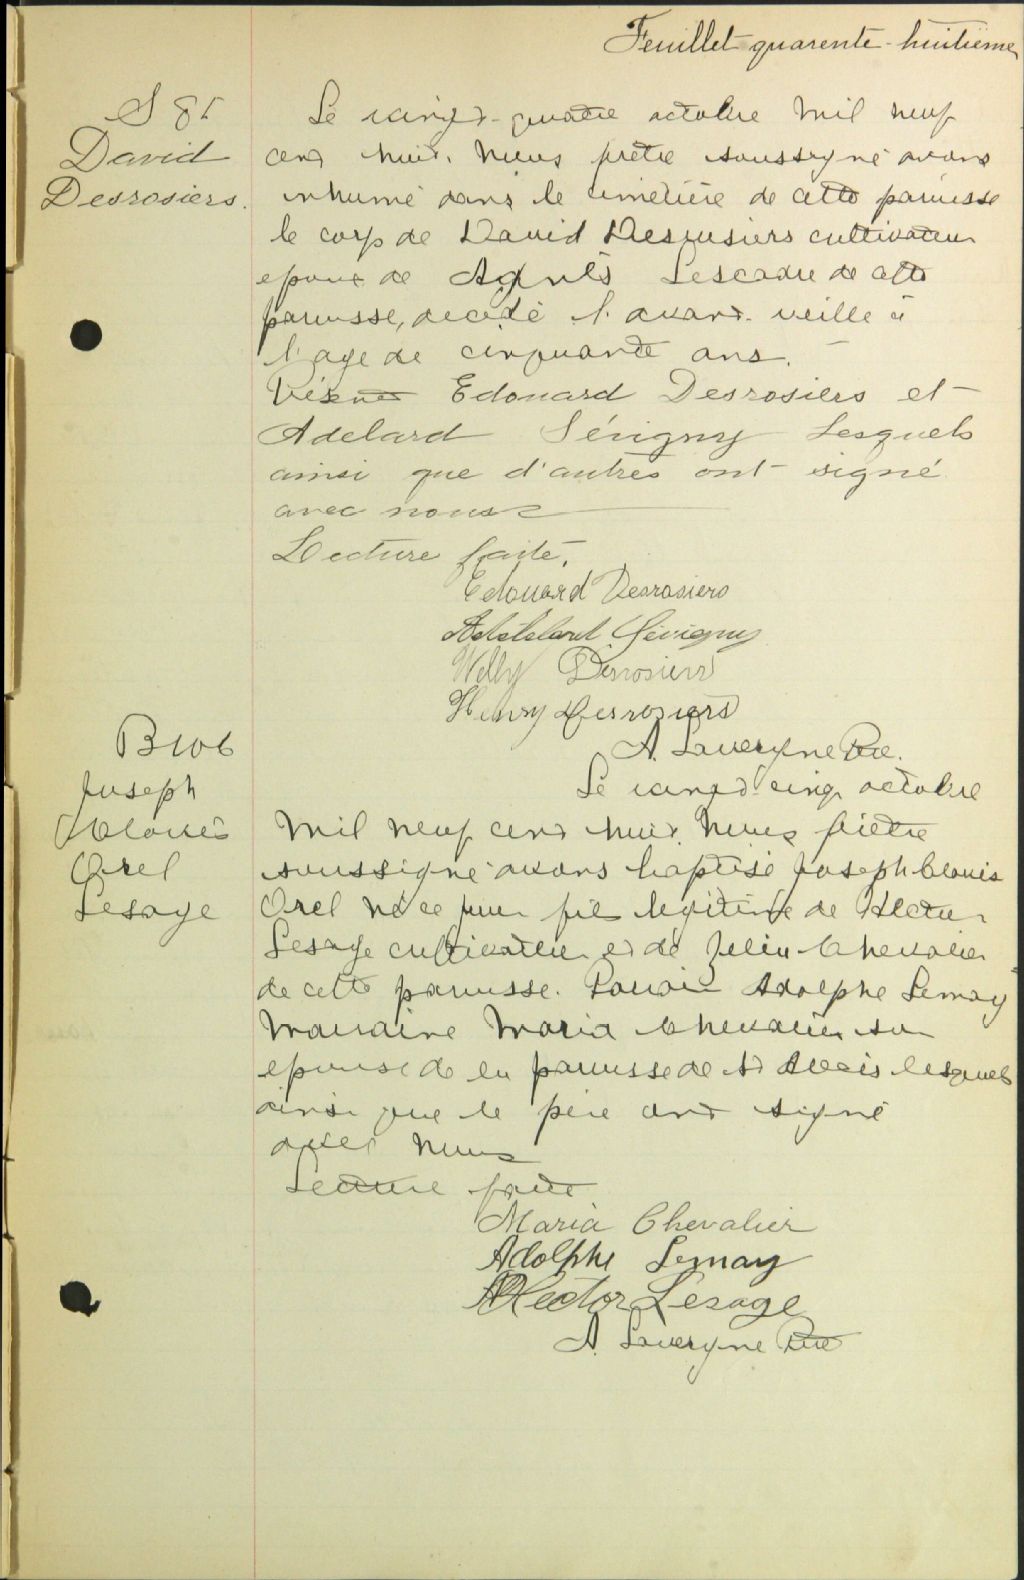 Feuillet quarente-huitième
S 81
David
Desrosiers.
Le vingt-quatre octobre mil neuf
cent huit. Nous prêtre soussigné avons
inhumé dans le cimetière de cette paroisse
le corp de David Desrosiers cultivateur
epoux de Agnès de cette
paroisse, decédé l'avant-veille à
l'age de cinquante ans.
Edouard Desrosiers et
Adelard Sévigny Lesquels
ainsi que d'autres ont signé
avec nous
Lecture faite,
Edouard Desrosiers
Adelard Sévigny
Willy Desrosiers
Henry Desrosiers
A. Lavergne Ptre.
B106
Joseph
Clovis
Orel
Lesage
Le vingt-cinq octobre
mil neuf cent huit. Nous prêtre
soussigné avons baptisé Joseph Clovis
Orel né ce jour fils légitime de Hector
Lesage cultivateur et de Chevalier
de cette paroisse. Parrain Adolphe Lemay
Marraine Maria Chevalier son
epouse de la paroisse de St lesquels
ainsi que le père ont signé
avec nous
Lecture faite
Maria Chevalier
Adolphe Lemay
Hector Lesage
A. Lavergne Ptre